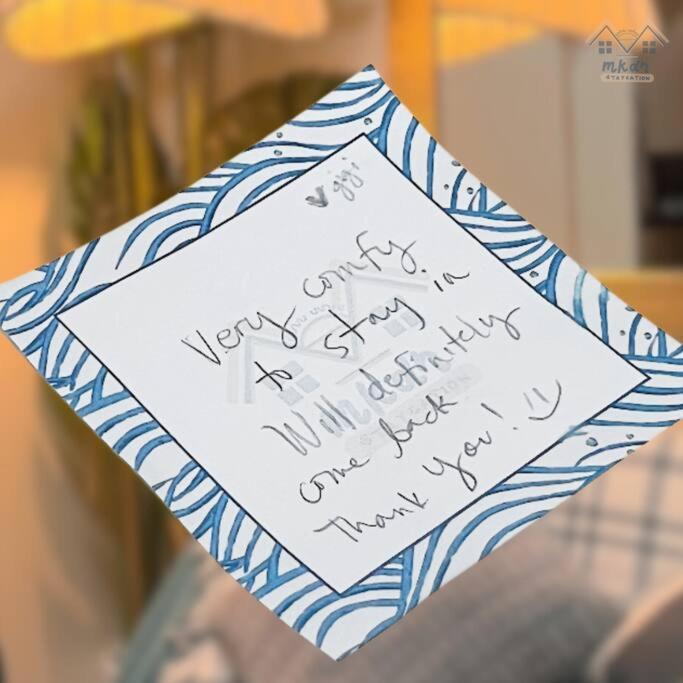 mkdn
STAYCATION
♥ gigi
Very comfy
to stay in
Will definitely
come back
Thank you! :)